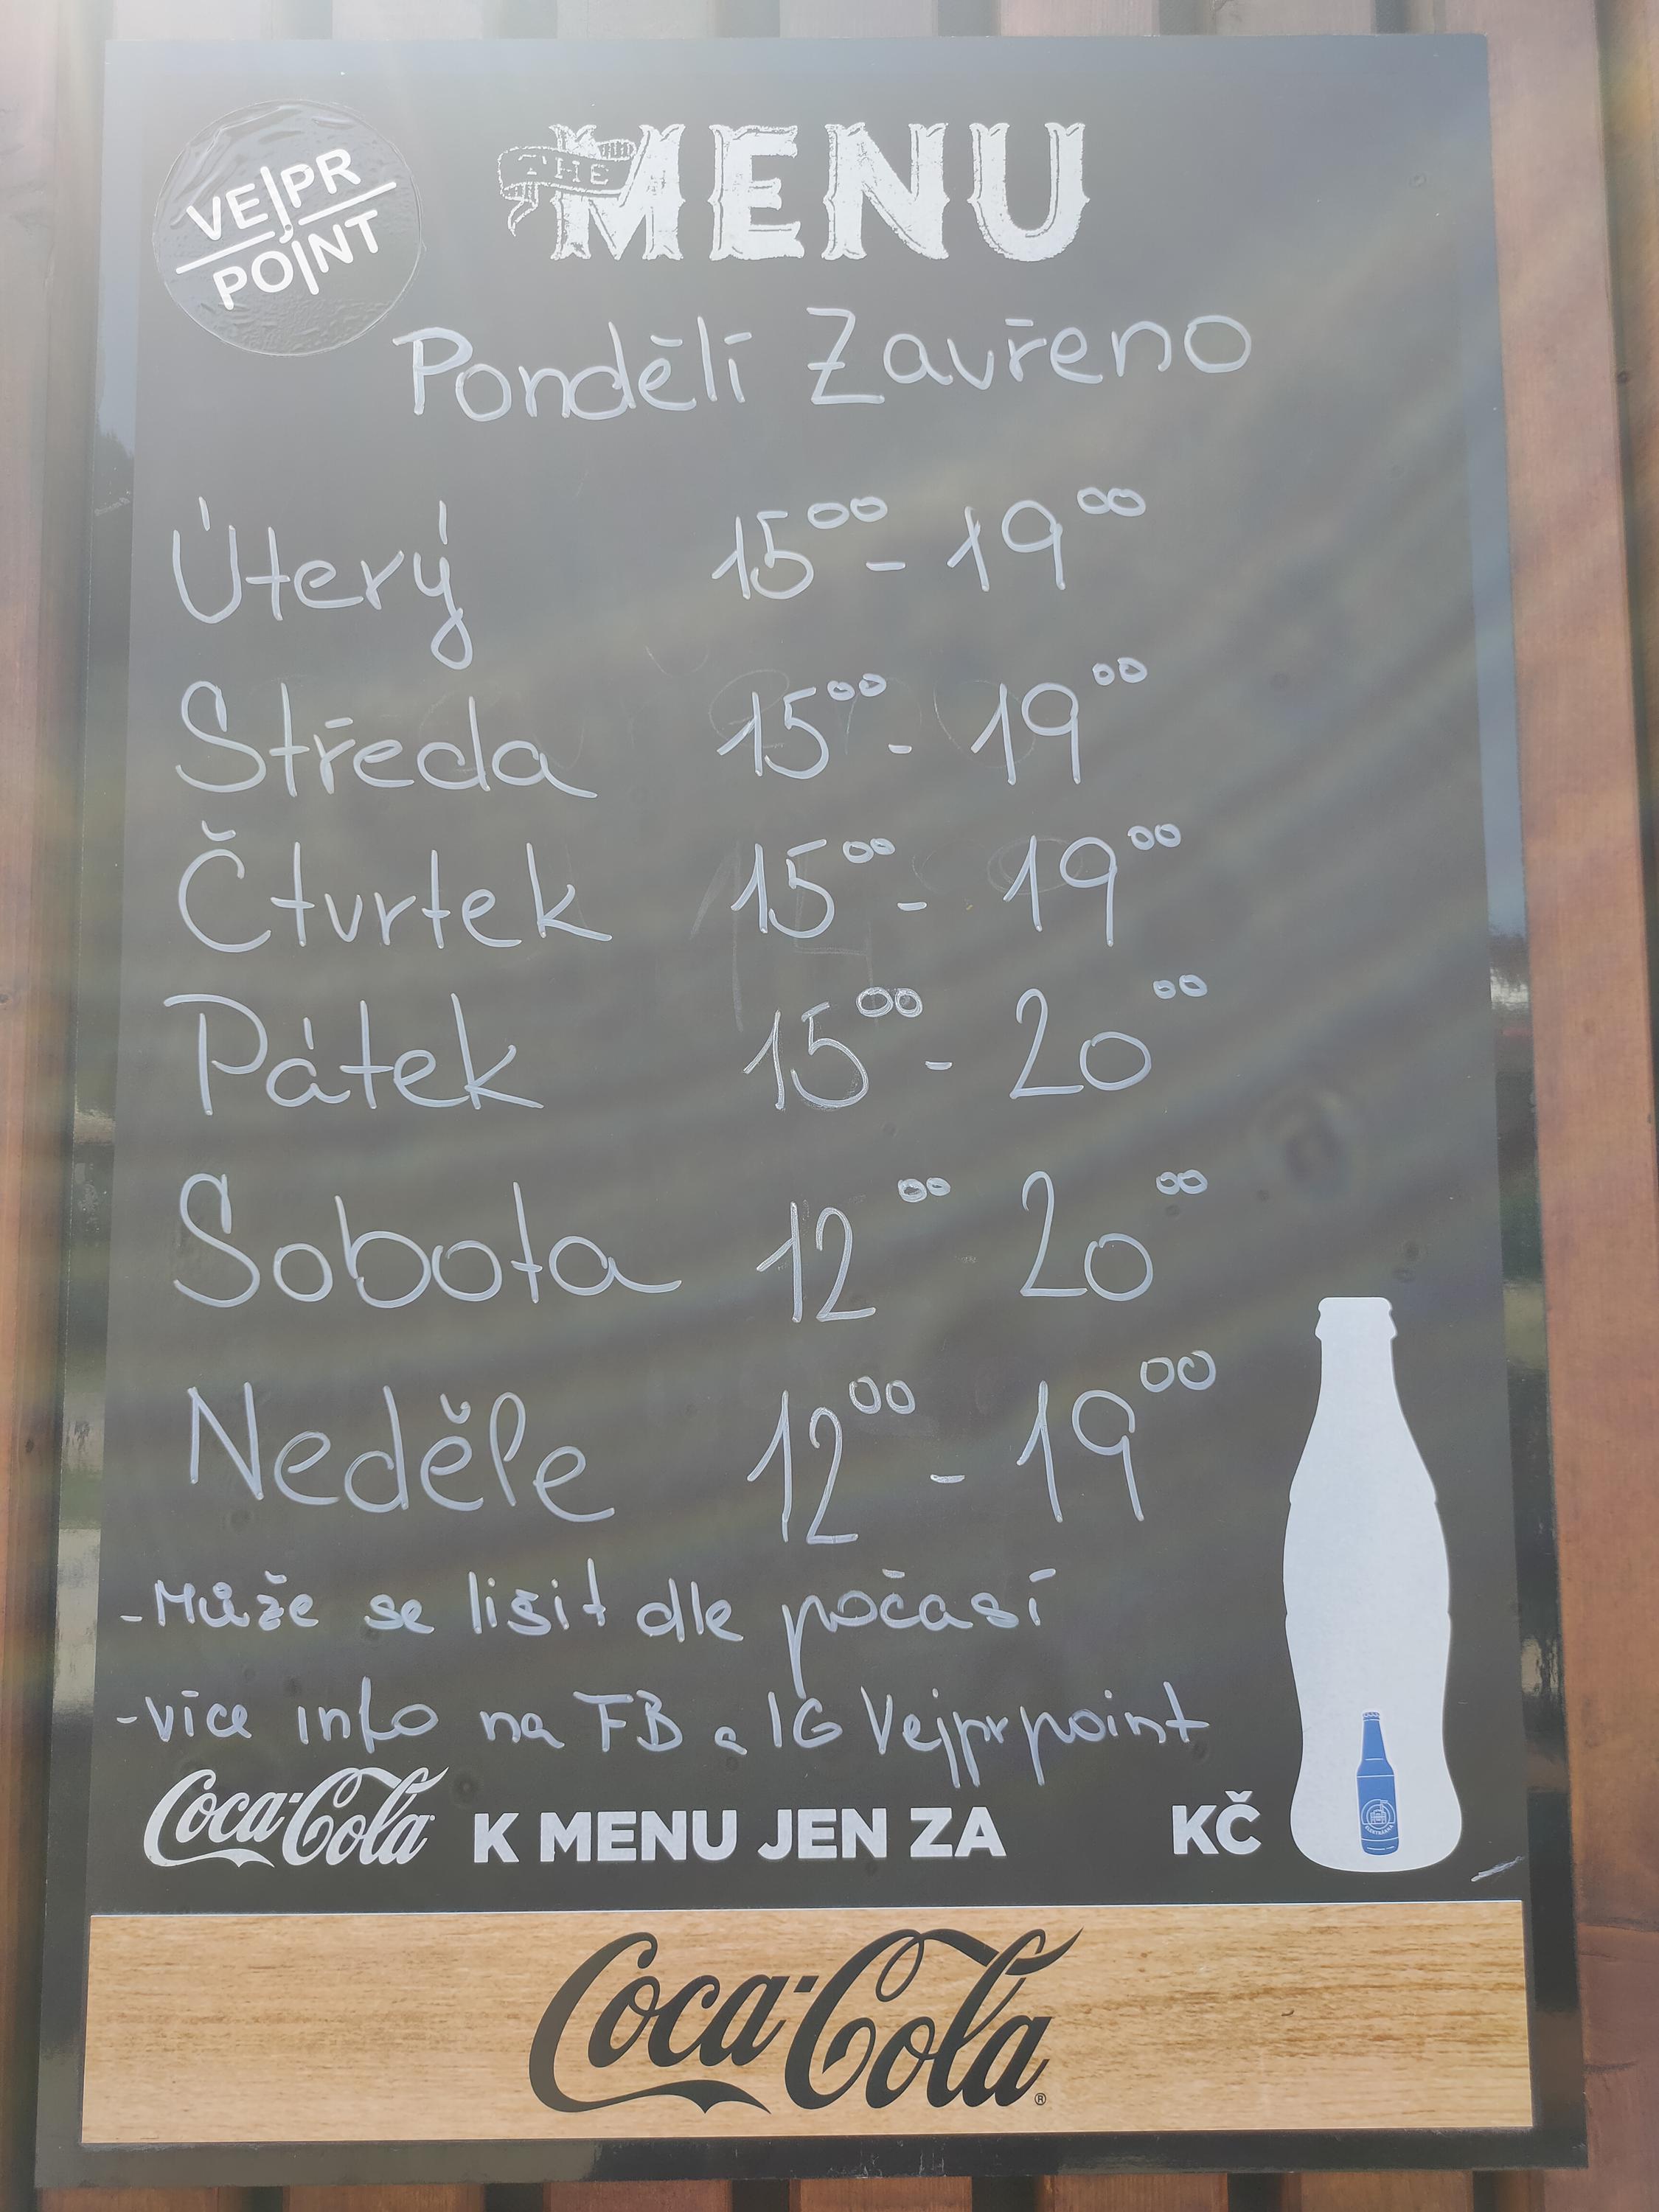 VEJPR
POINT
THE MENU
Pondělí Zavřeno
Úterý 15⁰⁰ - 19⁰⁰
Středa 15⁰⁰ - 19⁰⁰
Čtvrtek 15⁰⁰ - 19⁰⁰
Pátek 15⁰⁰ - 20⁰⁰
Sobota 12⁰⁰ 20⁰⁰
Neděle 12⁰⁰ - 19⁰⁰
-Může se lišit dle počasí
-více info na FB a IG Vejprpoint
Coca-Cola K MENU JEN ZA KČ
Coca-Cola®